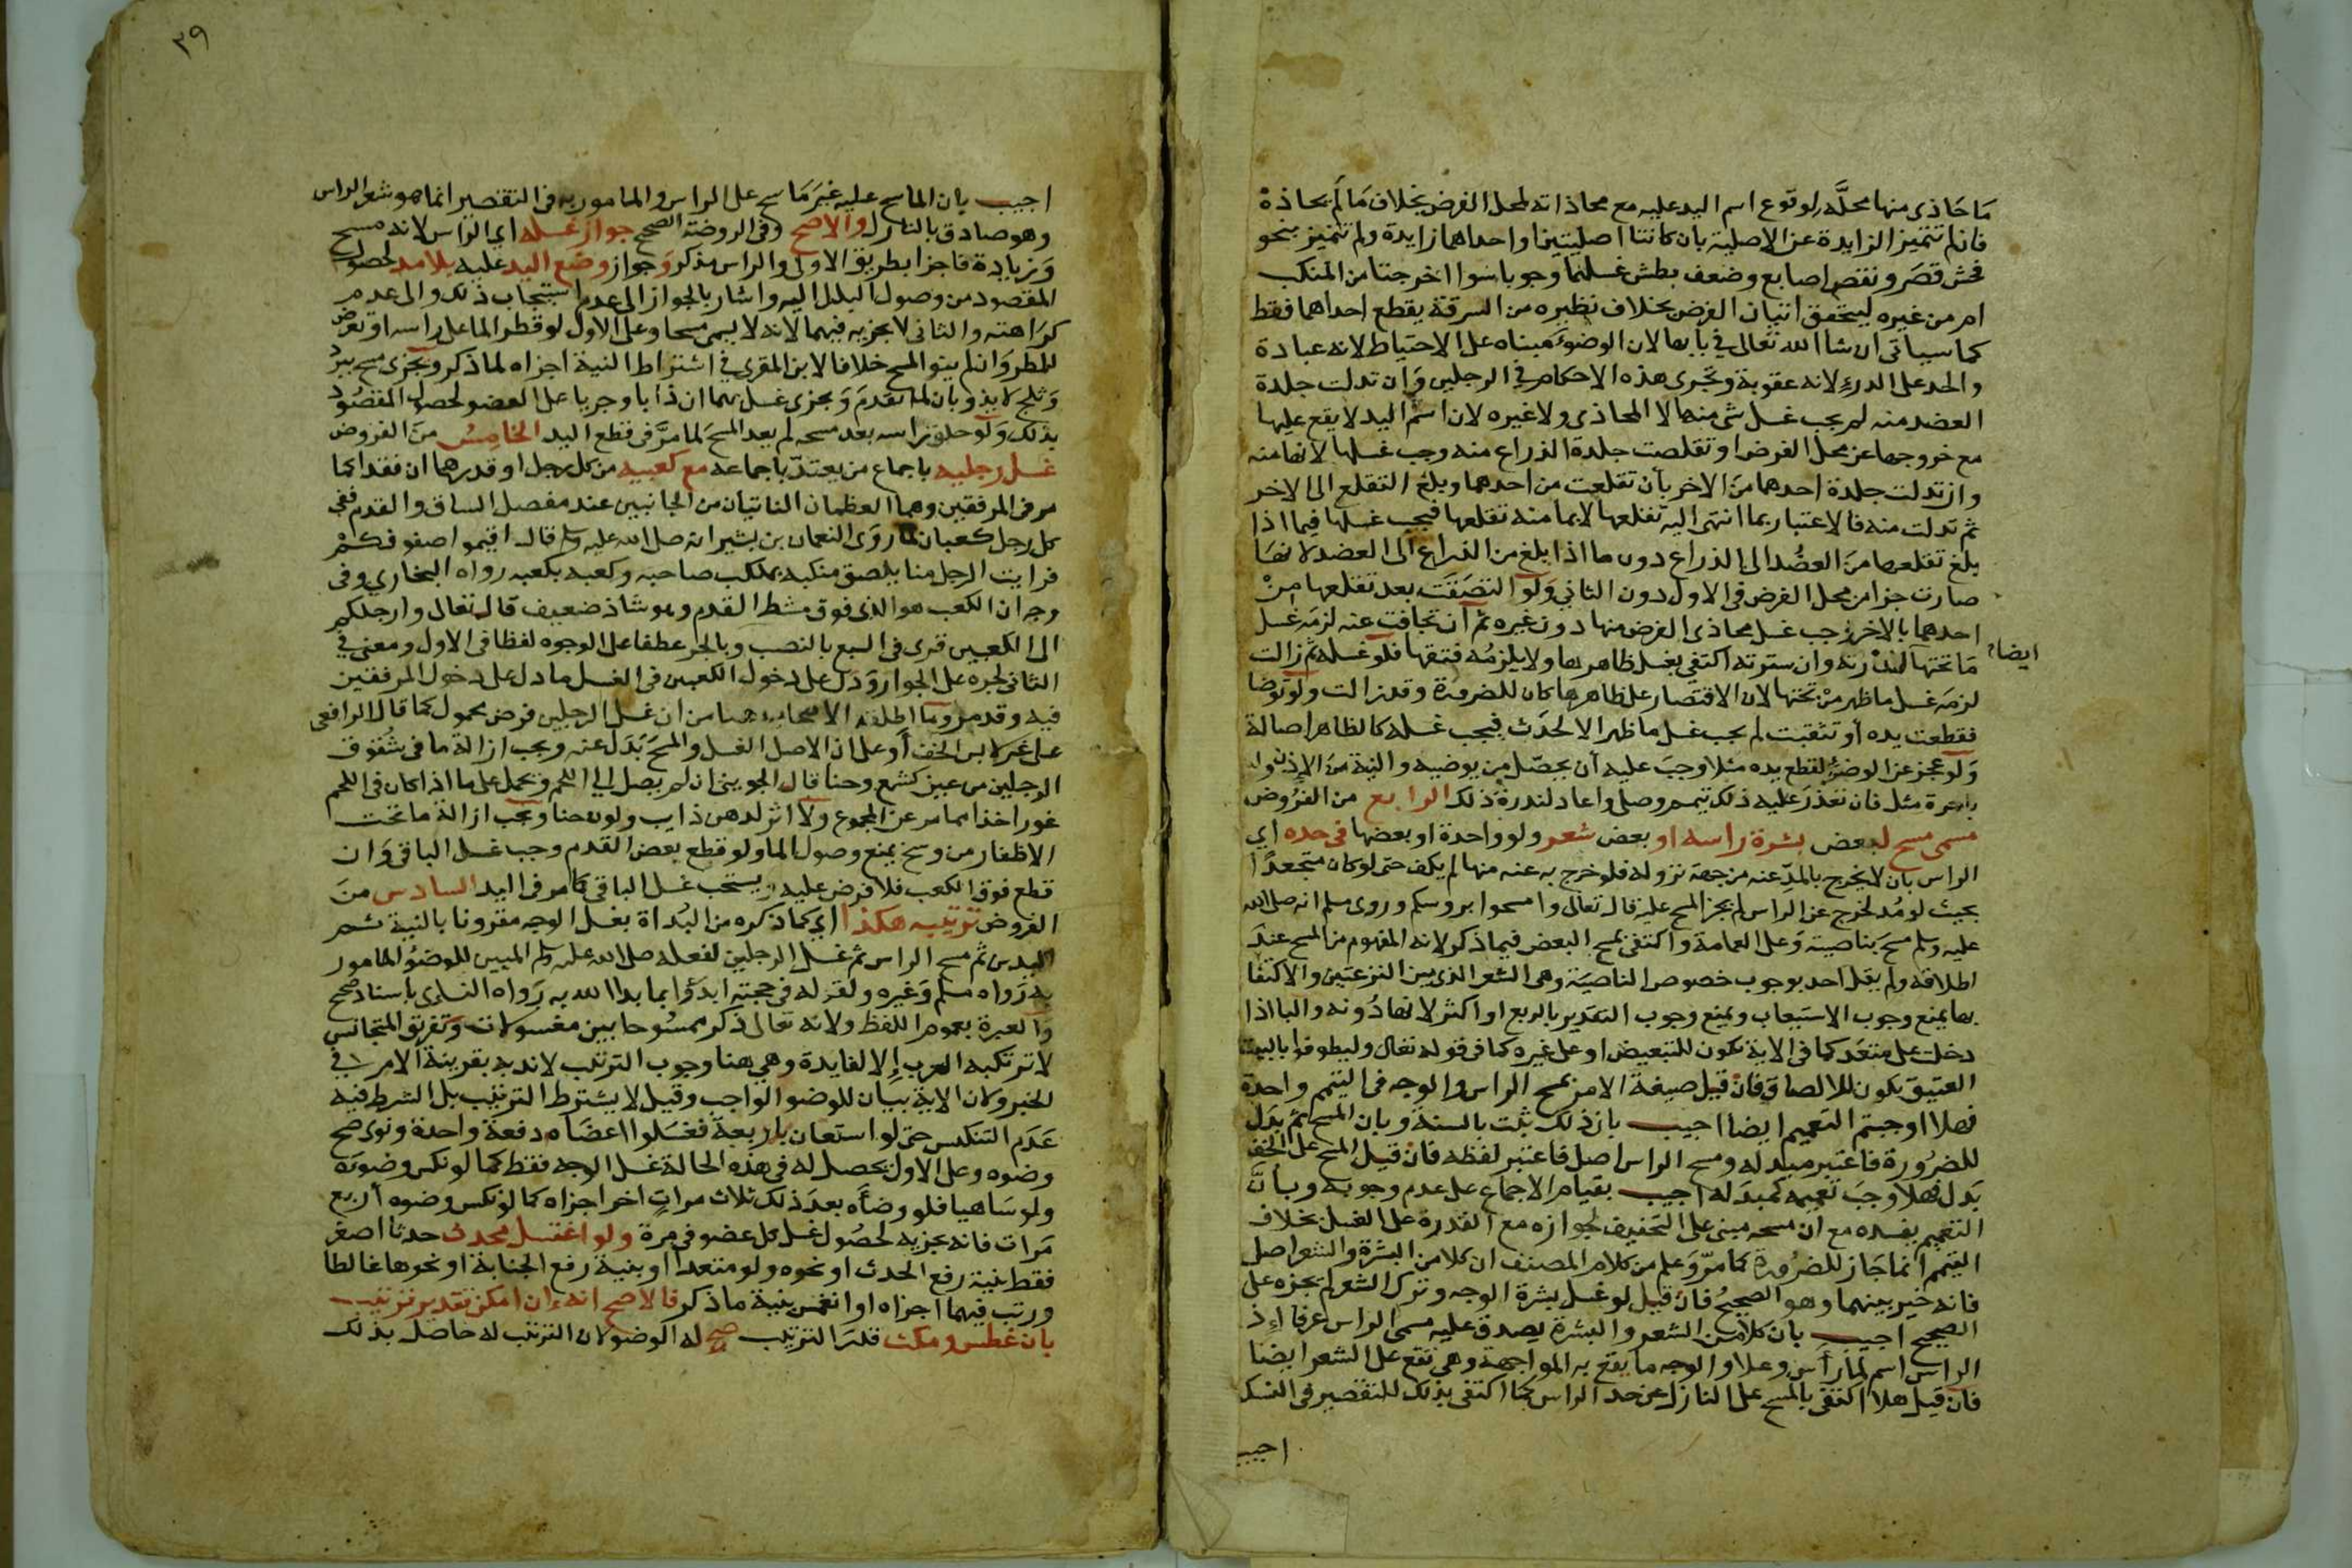 ما حاذى منها محله لوقوع اسم اليد عليه مع محاذاته لمحل الفرض بخلاف ما لم يحاذه
فان لم تتميز الزايدة عن الاصلية بان كانتا اصليتين او احداهما زايدة ولم تتميز بنحو
فحش قصر ونقص اصابع وضعف بطش غسلهما وجوبا سوا اخرجتا من المنكب
ام من غيره ليتحقق اتيان الفرض بخلاف نظيره من السرقة يقطع احداهما فقط
كما سياتى ان شا الله تعالى في بابها لان الوضوء مبناه على الاحتياط لانه عبادة
والحد على الدرء لانه عقوبة وتجرى هذه الاحكام في الرجلين وان تدلت جلدة
العضد منه لم يجب غسل شى منها لا المحاذى ولا غيره لان اسم اليد لا يقع عليها
مع خروجها عن محل الفرض او تقلصت جلدة الذراع منه وجب غسلها لانها منه
وان تدلت جلدة احدهما من الاخر بأن تقلعت من احدهما وبلغ التقلع الى الاخر
ثم تدلت منه فالاعتبار بما انتهى اليه تقلعها لا بما منه تقلعها فيجب غسلها فيما اذا
بلغ تقلعها من العضد الى الذراع دون ما اذا بلغ من الذراع الى العضد لانها
صارت جزا من محل الفرض فى الاول دون الثاني ولو التصقت بعد تقلعها من
احدهما بالاخر وجب غسل محاذى الفرض منها دون غيره ثم ان تجافت عنه لزمه غسل
ايضا
ما تحتها لندرته وان سترته اكتفي بغسل ظاهرها ولا يلزمه فتقها فلو غسله ثم زالت
لزمه غسل ما ظهر من تحتها لان الاقتصار على ظاهرها كان للضرورة وقد زالت ولو توضا
فقطعت يده أو تثقبت لم يجب غسل ما ظهر الا لحدث فيجب غسله كالظاهر اصالة
ولو عجز عن الوضوء لقطع يده مثلا وجب عليه أن يحصل من يوضيه والنية من الإذن ولو
باجرة مثل فان تعذر عليه ذلك تيمم وصلى واعاد لندرة ذلك الرابع من الفروض
مسمى مسح لبعض بشرة راسه او بعض شعر ولو واحدة او بعضها فى حده اي
الراس بان لا يخرج بالمد عنه من جهة نزوله فلو خرج به عنه منها لم يكف حتى لو كان متجعدا
بحيث لو مد لخرج عن الراس لم يجز المسح عليه قال تعالى وامسحوا بروسكم وروى مسلم انه صلى الله
عليه وسلم مسح بناصيته وعلى العمامة واكتفى بمسح البعض فيما ذكر لانه المفهوم من المسح عند
اطلاقه ولم يقل احد بوجوب خصوص الناصية وهى الشعر الذى بين النزعتين والاكتفا
بها يمنع وجوب الاستيعاب ويمنع وجوب التقدير بالربع او اكثر لانها دونه والبا اذا
دخلت على متعدد كما فى الاية تكون للتبعيض او على غيره كما فى قوله تعالى وليطوفوا بالبيت
العتيق يكون للالصاق فان قيل صيغة الامر بمسح الراس والوجه فى التيمم واحدة
فهلا اوجبتم التعميم ايضا اجيب بان ذلك ثبت بالسنة وبان المسح ثم بدل
للضرورة فاعتبر مبدله ومسح الراس اصل فاعتبر لفظه فان قيل المسح على الخف
بدل فهلا وجب تعميمه كمبدله اجيب بقيام الاجماع على عدم وجوبه وبأن
التعميم يفسده مع ان مسحه مبنى على التخفيف لجوازه مع القدرة على الغسل بخلاف
التيمم انما جاز للضرورة كما مر وعلم من كلام المصنف ان كلا من البشرة والشعر اصل
فانه خير بينهما وهو الصحيح فان قيل لو غسل بشرة الوجه وترك الشعر لم يجزه على
الصحيح اجيب بان كلا من الشعر والبشرة يصدق عليه مسمى الراس عرفا إذ
الراس اسم لما رأس وعلا والوجه ما يقع به المواجهة وهى تقع على الشعر ايضا
فان قيل هلا اكتفى بالمسح على النازل عن حد الراس كما اكتفى بذلك للتقصير فى النسك
اجيب
٣٩
اجيب بان الماسح عليه غير ماسح على الراس والمامور به فى التقصير انما هو شعر الراس
وهو صادق بالنازل والاصح وفى الروضة الصحيح جواز غسله اي الراس لانه مسح
وزيادة فاجزا بطريق الاولى والراس مذكر وجواز وضع اليد عليه بلا مد لحصول
المقصود من وصول البلل اليه واشار بالجواز الى عدم استحباب ذلك والى عدم
كراهته والثانى لا يجزيه فيهما لانه لا يسمى مسحا وعلى الاول لو قطر الما على راسه او تعرض
للمطر وان لم ينو المسح خلافا لابن المقري في اشتراط النية اجزاه لما ذكر ويجزى مسح ببرد
وثلج لا يذوبان لما تقدم ويجزى غسل بهما ان ذابا وجريا على العضو لحصول المقصود
بذلك ولو حلق راسه بعد مسحه لم يعد المسح لما مر فى قطع اليد الخامس من الفروض
غسل رجليه باجماع من يعتد باجماعه مع كعبيه من كل رجل او قدرهما ان فقدا كما
مر فى المرفقين وهما العظمان الناتيان من الجانبين عند مفصل الساق والقدم ففى
كل رجل كعبان لما روى النعمان بن بشير انه صلى الله عليه وسلم قال اقيموا صفوفكم
فرايت الرجل منا يلصق منكبه بمنكب صاحبه وكعبه بكعبه رواه البخاري وفى
وجه ان الكعب هو الذى فوق مشط القدم وهو شاذ ضعيف قال تعالى وارجلكم
الى الكعبين قرى فى السبع بالنصب وبالجر عطفا على الوجوه لفظا فى الاول ومعنى في
الثانى لجره على الجوار ودل على دخول الكعبين فى الغسل ما دل على دخول المرفقين
فيه وقد مر وما اطلقه الاصحاب هنا من ان غسل الرجلين فرض محمول كما قال الرافعى
على غير لابس الخف أو على ان الاصل الغسل والمسح بدل عنه ويجب ازالة ما فى شقوق
الرجلين من عين كشمع وحنا قال الجوينى ان لم يصل الي اللحم ويحمل على ما اذا كان فى اللحم
غور اخذا مما مر عن المجموع ولا اثر لدهن ذايب ولون حنا ويجب ازالة ما تحت
الاظفار من وسخ يمنع وصول الما ولو قطع بعض القدم وجب غسل الباقى وان
قطع فوق الكعب فلا فرض عليه ويستحب غسل الباقى كما مر فى اليد السادس من
الفروض ترتيبه هكذا اي كما ذكره من البداة بغسل الوجه مقرونا بالنية ثم
اليدين ثم مسح الراس ثم غسل الرجلين لفعله صلى الله عليه وسلم المبين للوضوء المامور
به رواه مسلم وغيره ولقوله فى حجته ابدؤا بما بدا الله به رواه النساى باسناد صحيح
والعبرة بعموم اللفظ ولانه تعالى ذكر ممسوحا بين مغسولات وتفريق المتجانس
لا ترتكبه العرب إلا لفايدة وهي هنا وجوب الترتيب لا ندبه بقرينة الامر في
الخبر ولان الاية بيان للوضو الواجب وقيل لا يشترط الترتيب بل الشرط فيه
عدم التنكيس حتى لو استعان باربعة فغسلوا اعضاه دفعة واحدة ونوى صح
وضوه وعلى الاول يحصل له فى هذه الحالة غسل الوجه فقط كما لو نكس وضوءه
ولو ساهيا فلو وضاه بعد ذلك ثلاث مرات اخر اجزاه كما لو نكس وضوه أربع
مرات فانه يجزيه لحصول غسل كل عضو فى مرة ولو اغتسل محدث حدثا اصغر
فقط بنية رفع الحدث او نحوه ولو متعمدا او بنية رفع الجنابة او نحوها غالطا
ورتب فيهما اجزاه او انغمس بنية ما ذكر فالاصح انه ان امكن تقدير ترتيب
بان غطس ومكث قدر الترتيب صح له الوضو لان الترتيب له حاصل بذلك